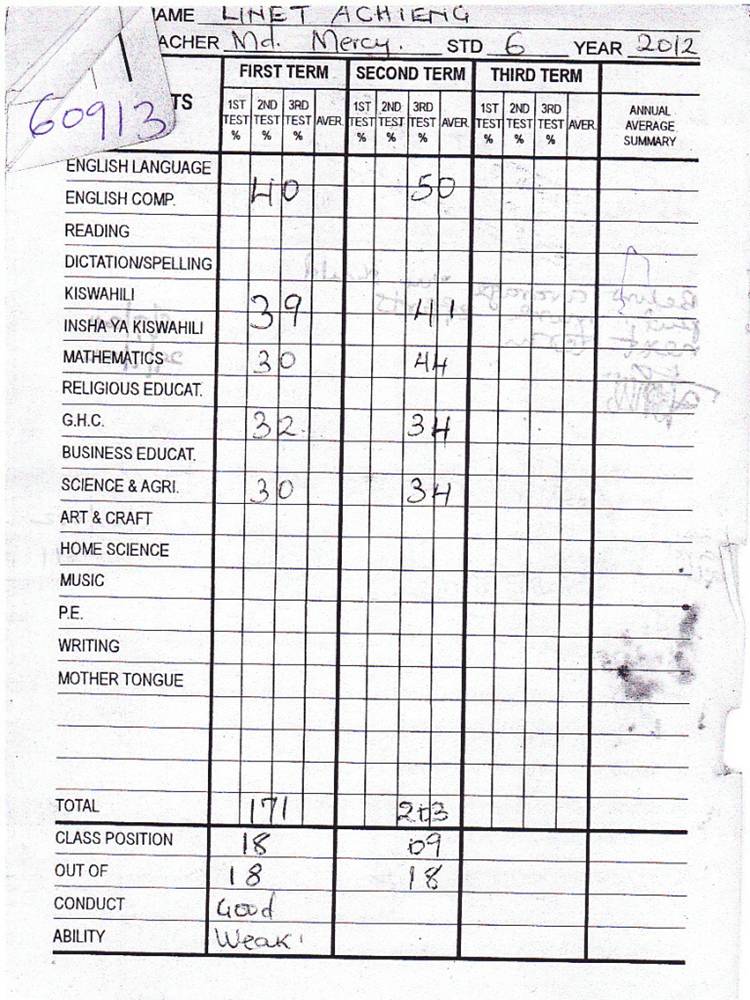 NAME LINET ACHIENG
ACHER Md. Mercy. STD 6 YEAR 2012
60913
TS FIRST TERM SECOND TERM THIRD TERM
1ST TEST % 2ND TEST % 3RD TEST % AVER. 1ST TEST % 2ND TEST % 3RD TEST % AVER. 1ST TEST % 2ND TEST % 3RD TEST % AVER. ANNUAL AVERAGE SUMMARY
ENGLISH LANGUAGE
ENGLISH COMP. 40 50
READING
DICTATION/SPELLING
KISWAHILI 39 41
INSHA YA KISWAHILI
MATHEMATICS 30 44
RELIGIOUS EDUCAT.
G.H.C. 32 34
BUSINESS EDUCAT.
SCIENCE & AGRI. 30 34
ART & CRAFT
HOME SCIENCE
MUSIC
P.E.
WRITING
MOTHER TONGUE
TOTAL 171 203
CLASS POSITION 18 09
OUT OF 18 18
CONDUCT Good
ABILITY Weak